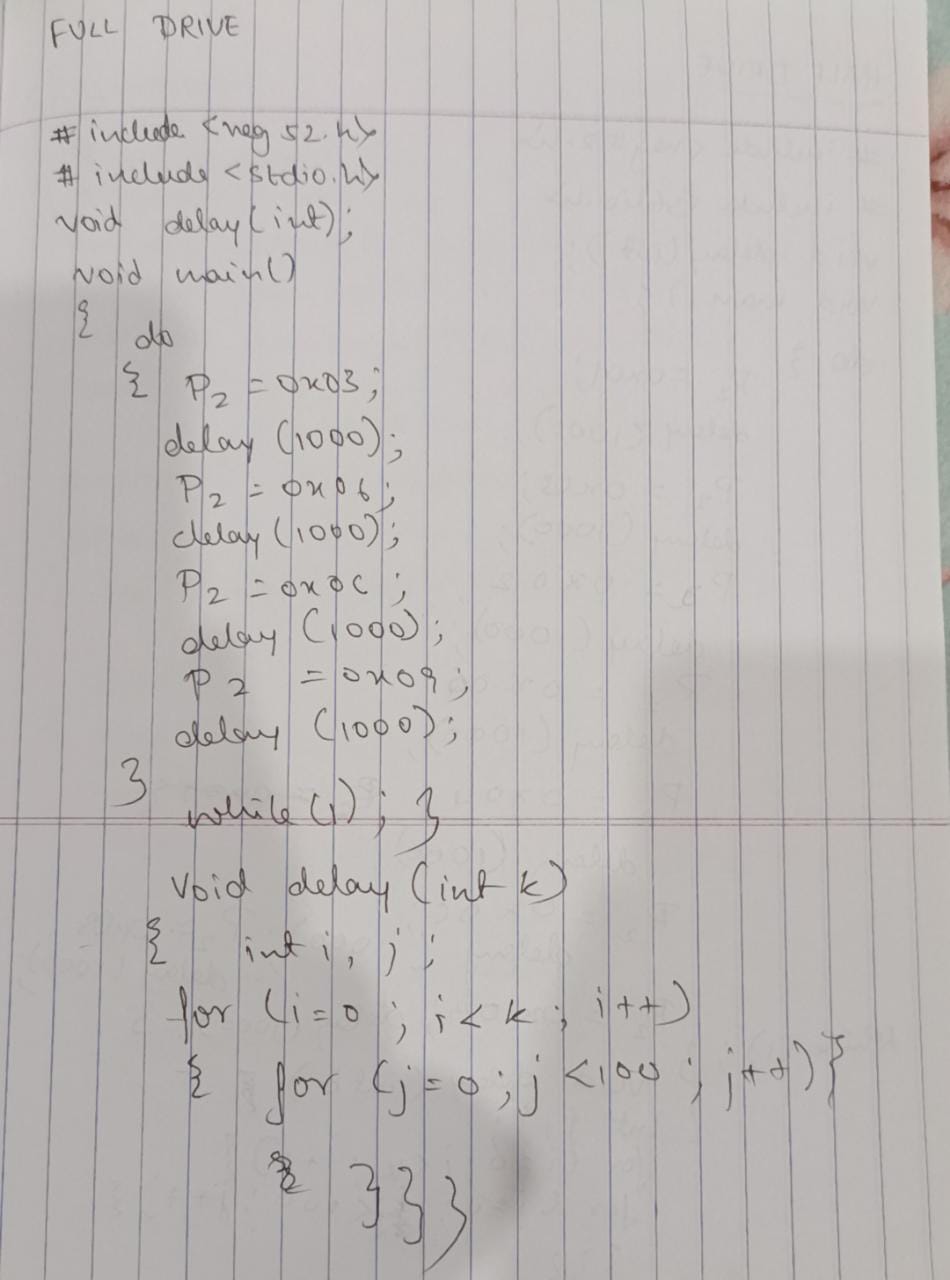 FULL DRIVE
# include <reg 52.h>
# include <stdio.h>
void delay(int);
void main()
{ do
{ P2 = 0x03;
delay (1000);
P2 = 0x06;
delay (1000);
P2 = 0x0C;
delay (1000);
P2 = 0x09;
delay (1000);
}
while(1); }
void delay (int k)
{ int i, j;
for (i=0; i<k; i++)
{ for (j=0; j<100; j++)}
}}}